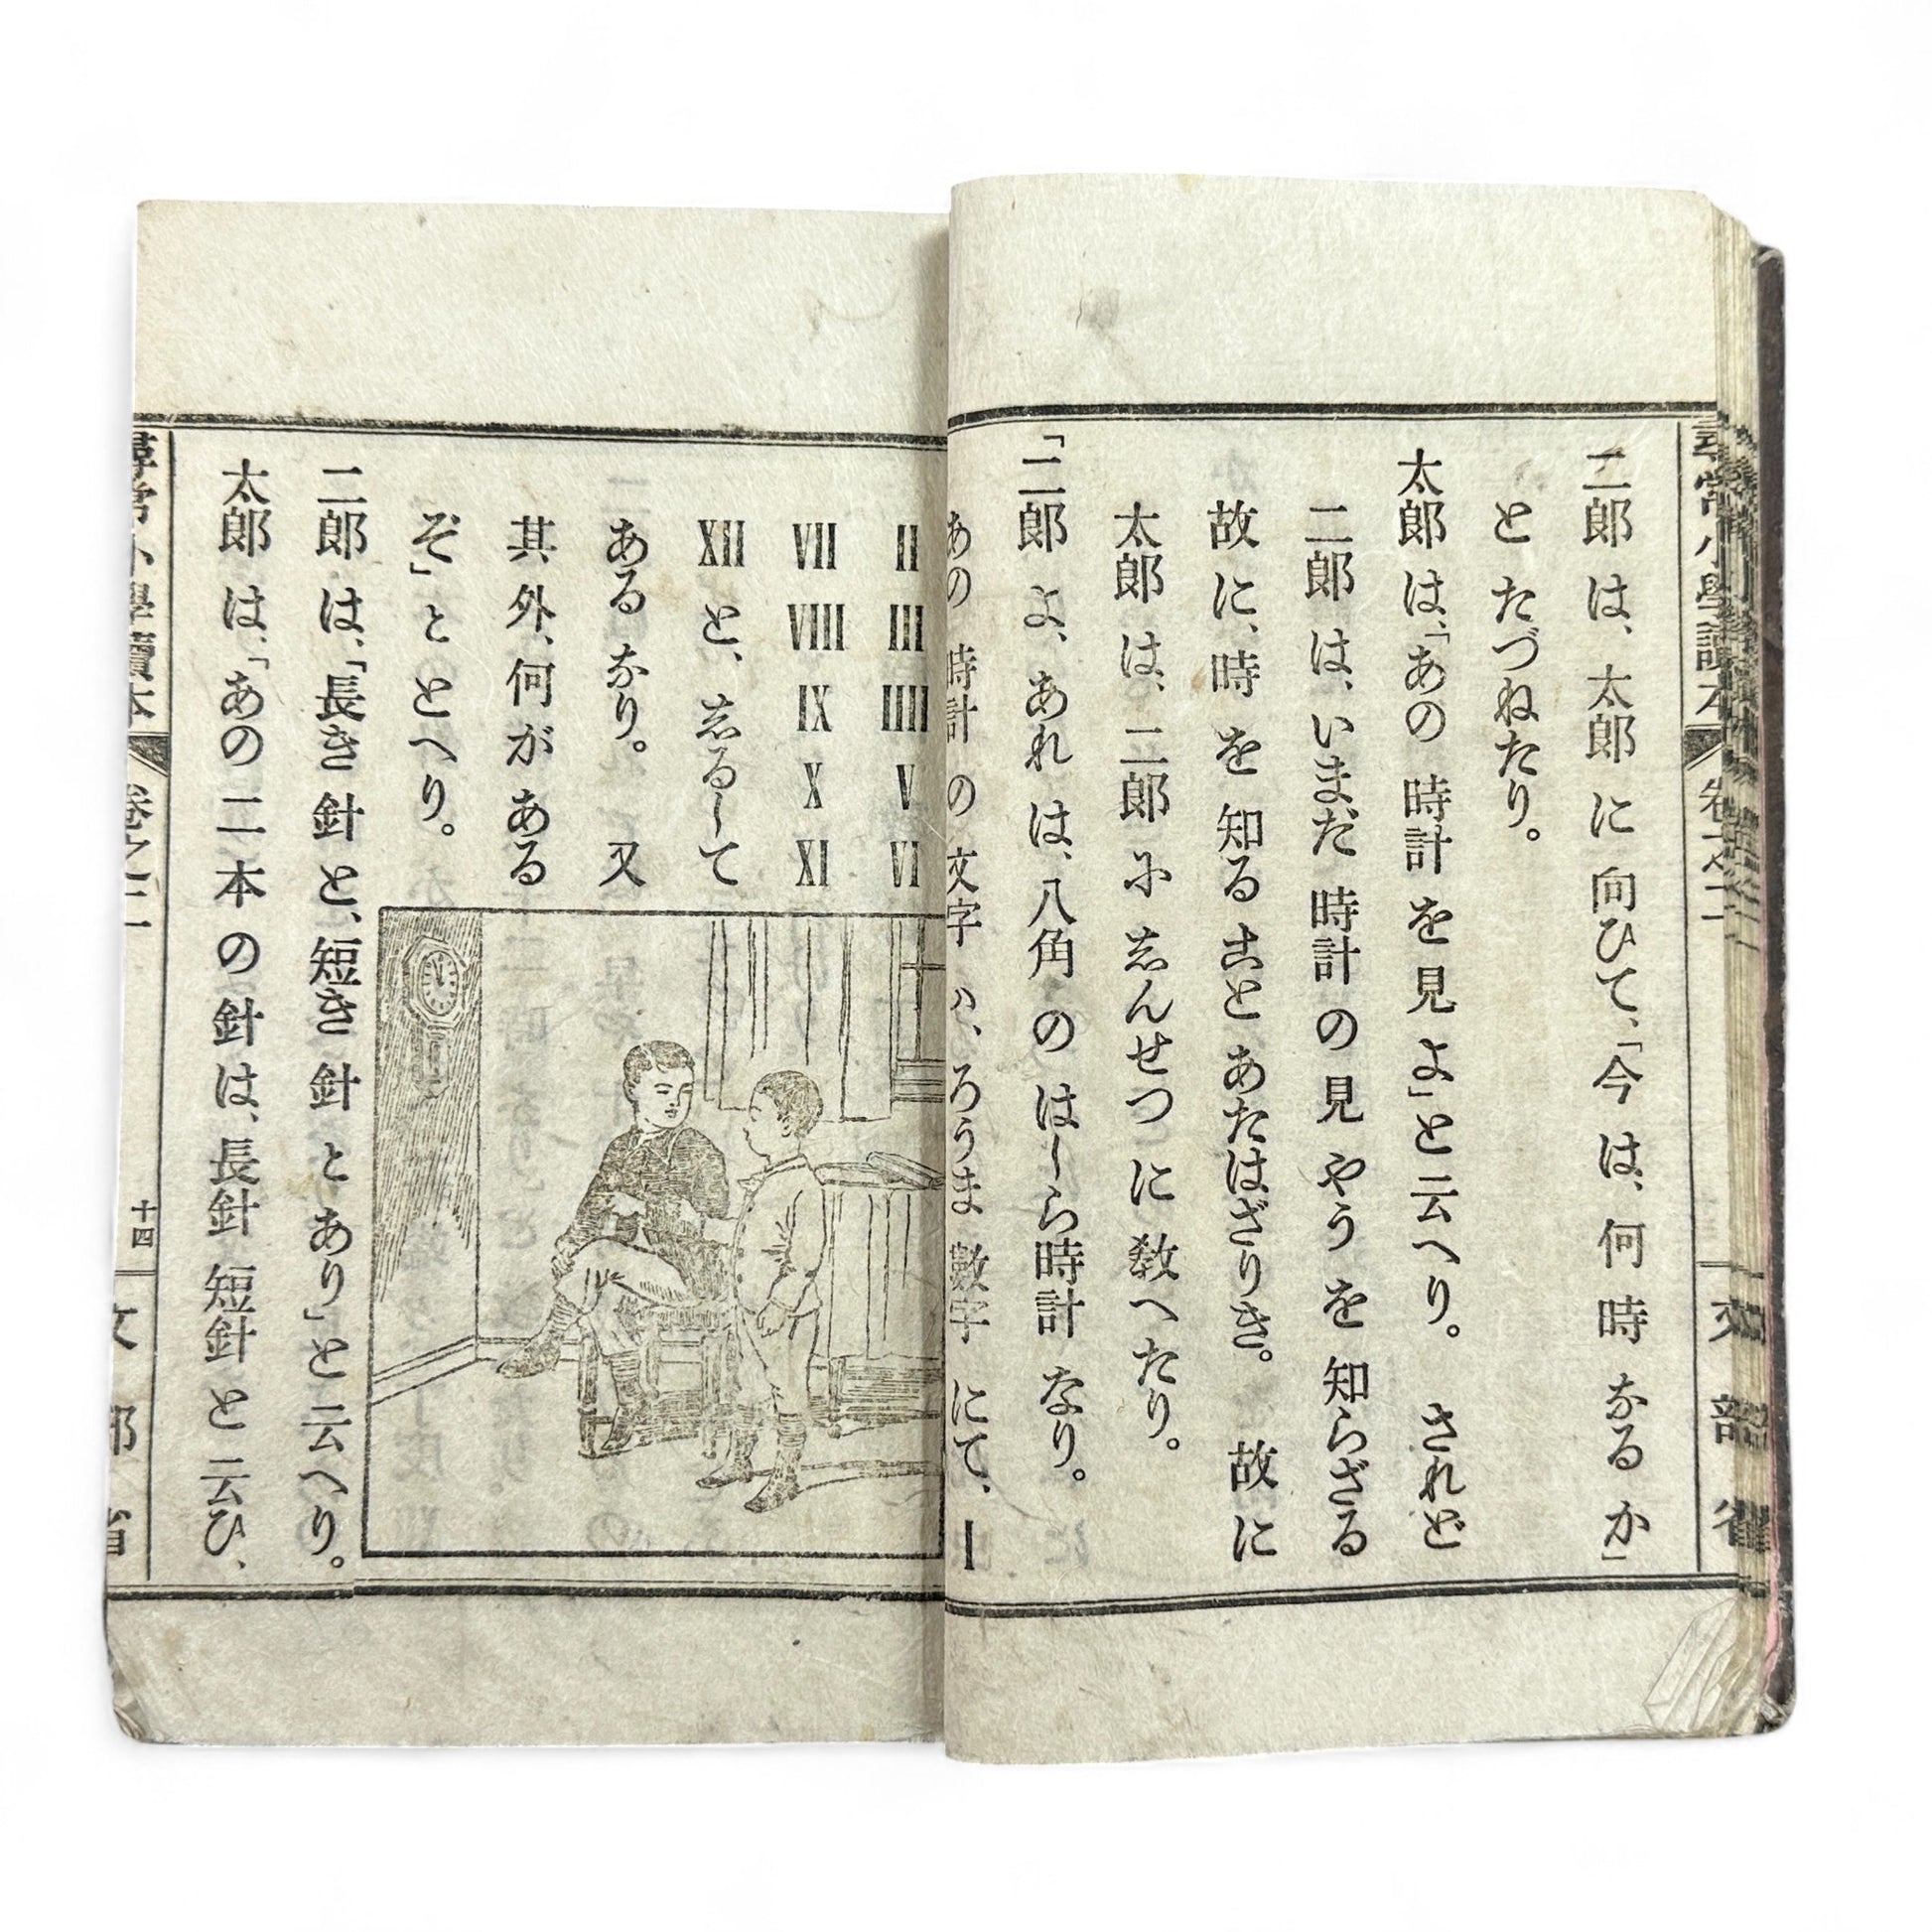 尋常小學讀本
卷之二
文部省
二郎は、太郎に向ひて、「今は、何時なるか」
とたづねたり。
太郎は、「あの時計を見よ」と云へり。されど
二郎は、いまだ時計の見やうを知らざる
故に、時を知ることあたはざりき。故に
太郎は、二郎にしんせつに敎へたり。
「二郎よ、あれは、八角のはしら時計なり。
あの時計の文字ハ、ろうま數字にて、I
II III IIII V VI
VII VIII IX X XI
XII と、しるして
あるなり。又
其外、何がある
ぞ」ととへり。
二郎は、「長き針と、短き針とあり」と云へり。
太郎は、「あの二本の針は、長針短針と云ひ、
尋常小學讀本
卷之二
十四
文部省